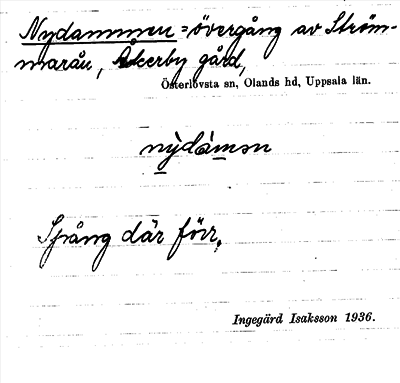 Nydammen = övergång av Ström-
marån, Åkerby gård,
Österlövsta sn, Olands hd, Uppsala län.
nỳdámən
Spång där förr.
Ingegärd Isaksson 1936.